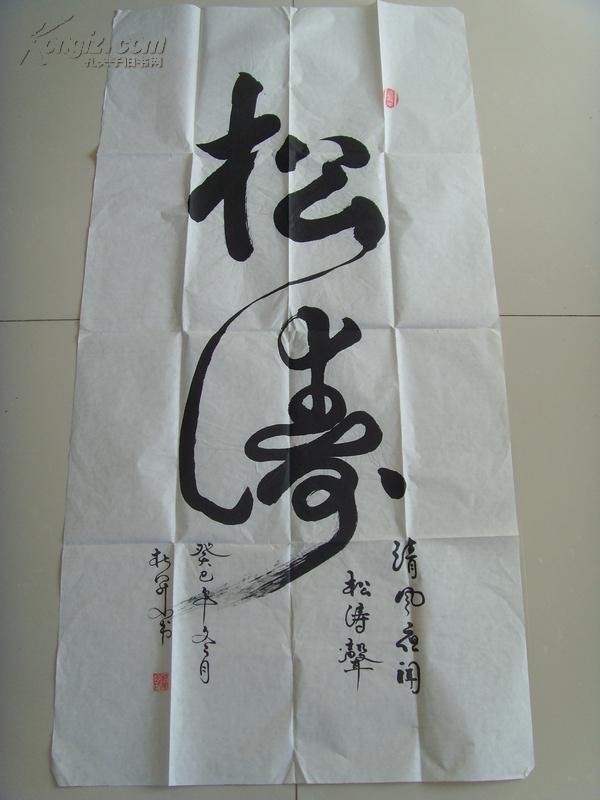 松涛
清风夜闻
松涛聲
癸巳年
月
书
Kongfz.com
孔夫子旧书网